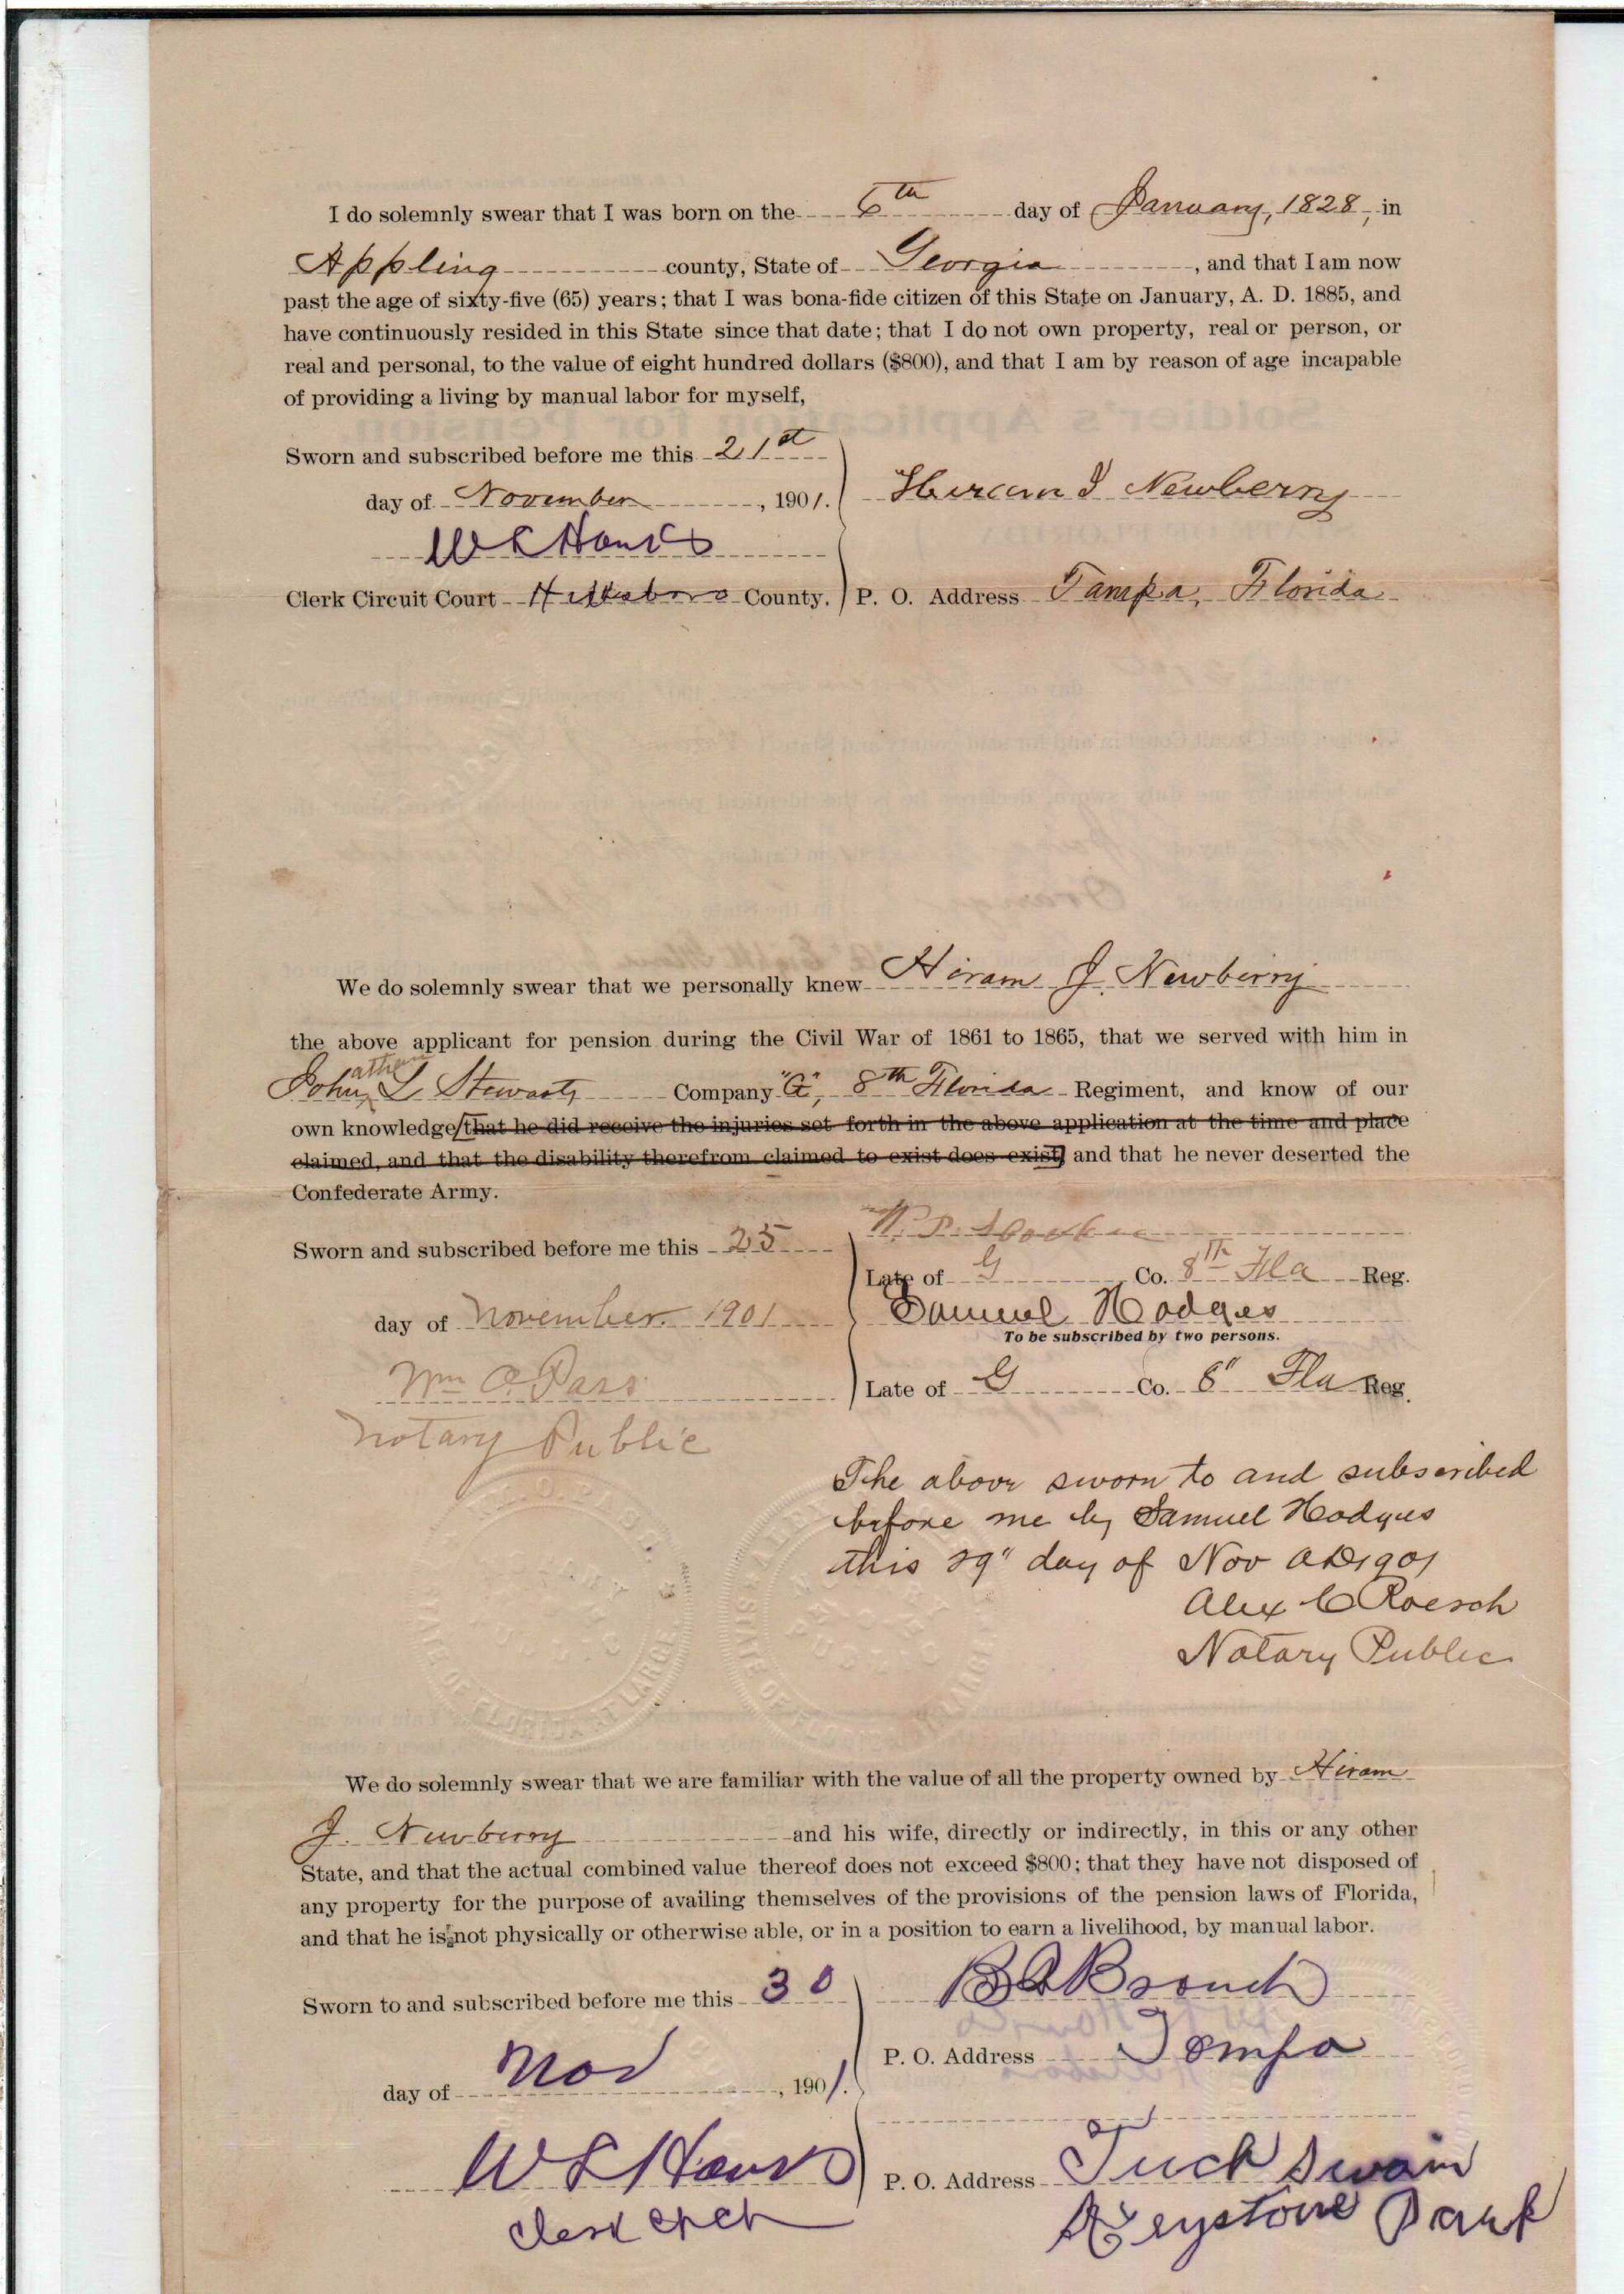 I do solemnly swear that I was born on the 6th day of January, 1828, in
Appling county, State of Georgia, and that I am now
past the age of sixty-five (65) years; that I was bona-fide citizen of this State on January, A. D. 1885, and
have continuously resided in this State since that date; that I do not own property, real or person, or
real and personal, to the value of eight hundred dollars ($800), and that I am by reason of age incapable
of providing a living by manual labor for myself,
Sworn and subscribed before me this 21st
day of November, 1901.
Hiram J Newberry
Clerk Circuit Court Hillsboro County.
P. O. Address Tampa, Florida
We do solemnly swear that we personally knew Hiram J. Newberry
the above applicant for pension during the Civil War of 1861 to 1865, that we served with him in
John L Stewarts Company "G", 8th Florida Regiment, and know of our
own knowledge that he did receive the injuries set forth in the above application at the time and place
claimed, and that the disability therefrom claimed to exist does exist, and that he never deserted the
Confederate Army.
Sworn and subscribed before me this 25
Late of G Co. 8th Fla Reg.
day of November 1901
Samuel Hodges
To be subscribed by two persons.
Wm O. Pass
Late of G Co. 8" Fla Reg.
Notary Public
The above sworn to and subscribed
before me by Samuel Hodges
this 29" day of Nov AD 1901
Alex C Roesch
Notary Public
STATE OF FLORIDA AT LARGE
We do solemnly swear that we are familiar with the value of all the property owned by Hiram
J. Newberry and his wife, directly or indirectly, in this or any other
State, and that the actual combined value thereof does not exceed $800; that they have not disposed of
any property for the purpose of availing themselves of the provisions of the pension laws of Florida,
and that he is not physically or otherwise able, or in a position to earn a livelihood, by manual labor.
Sworn to and subscribed before me this 30
P. O. Address Tampa
day of Nov, 1901.
P. O. Address Tuck Swain
Keystone Park